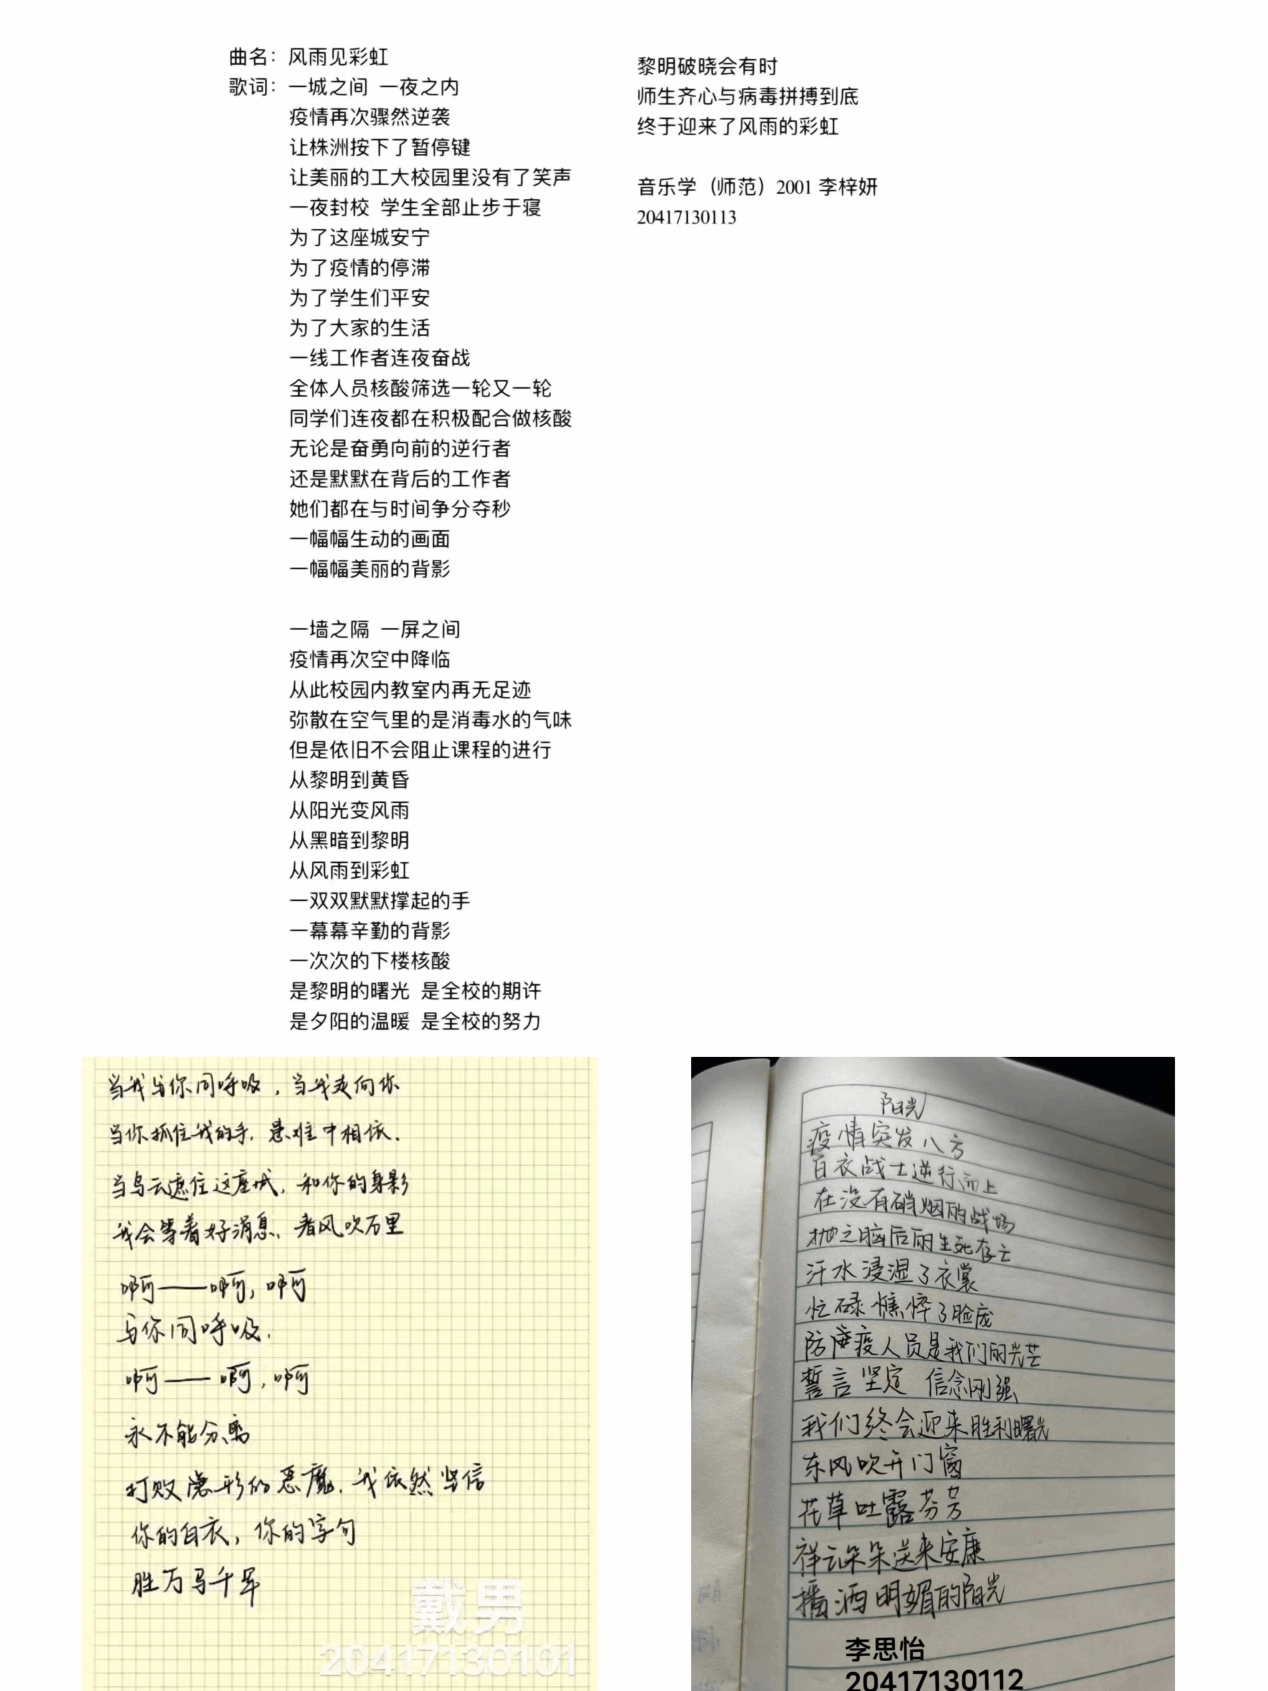 曲名：风雨见彩虹
歌词：一城之间 一夜之内
疫情再次骤然逆袭
让株洲按下了暂停键
让美丽的工大校园里没有了笑声
一夜封校 学生全部止步于寝
为了这座城安宁
为了疫情的停滞
为了学生们平安
为了大家的生活
一线工作者连夜奋战
全体人员核酸筛选一轮又一轮
同学们连夜都在积极配合做核酸
无论是奋勇向前的逆行者
还是默默在背后的工作者
她们都在与时间争分夺秒
一幅幅生动的画面
一幅幅美丽的背影
一墙之隔 一屏之间
疫情再次空中降临
从此校园内教室内再无足迹
弥散在空气里的是消毒水的气味
但是依旧不会阻止课程的进行
从黎明到黄昏
从阳光变风雨
从黑暗到黎明
从风雨到彩虹
一双双默默撑起的手
一幕幕辛勤的背影
一次次的下楼核酸
是黎明的曙光 是全校的期许
是夕阳的温暖 是全校的努力
黎明破晓会有时
师生齐心与病毒拼搏到底
终于迎来了风雨的彩虹
音乐学（师范）2001 李梓妍
20417130113
当我与你同呼吸，当我走向你
当你抓住我的手，患难中相依．
当乌云遮住这座城，和你的身影
我会等着好消息，春风吹万里
啊——啊，啊
与你同呼吸．
啊——啊，啊
永不能分离
打败隐形的恶魔，我依然坚信
你的白衣，你的字句
胜万马千军
戴男
20417130101
阳光
疫情突发八方
白衣战士逆行而上
在没有硝烟的战场
抛之脑后的生死存亡
汗水浸湿了衣裳
忙碌憔悴了脸庞
防疫人员是我们的光芒
誓言坚定 信念刚强
我们终会迎来胜利曙光
东风吹开门窗
花草吐露芬芳
祥云朵朵送来安康
播洒明媚的阳光
李思怡
20417130112